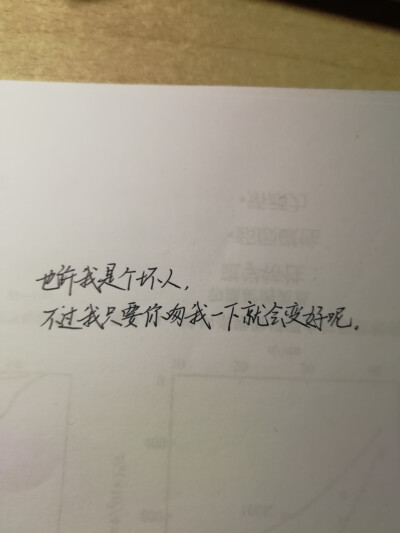 也许我是个坏人，
不过我只要你吻我一下就会变好呢。